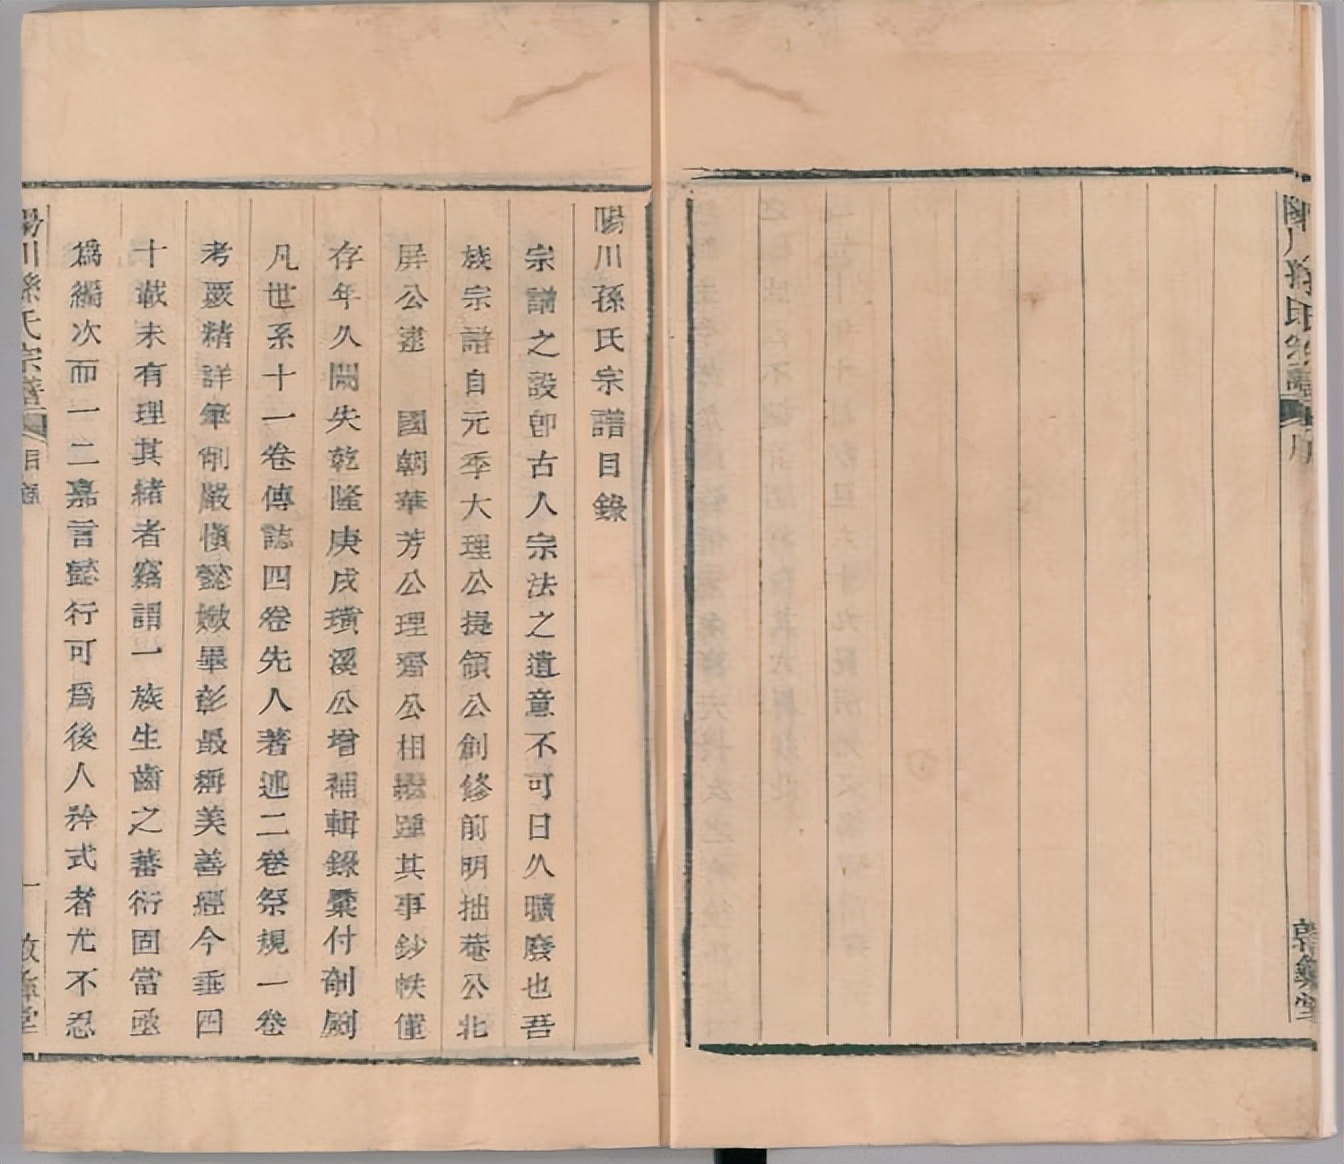 陽川孫氏宗譜
序
陽川孫氏宗譜目錄
宗譜之設卽古人宗法之遺意不可日久曠廢也吾
族宗譜自元季大理公提領公創修前明拙菴公北
屏公遞 國朝華芳公理齋公相繼踵其事鈔帙僅
存年久闕失乾隆庚戌璜溪公增補輯錄彙付剞劂
凡世系十一卷傳誌四卷先人著述二卷祭規一卷
考覈精詳筆削嚴愼懿媺畢彰最稱美善經今垂四
十載未有理其緒者竊謂一族生齒之蕃衍固當亟
爲編次而一二嘉言懿行可爲後人矜式者尤不忍
陽川孫氏宗譜
目錄
一
堂